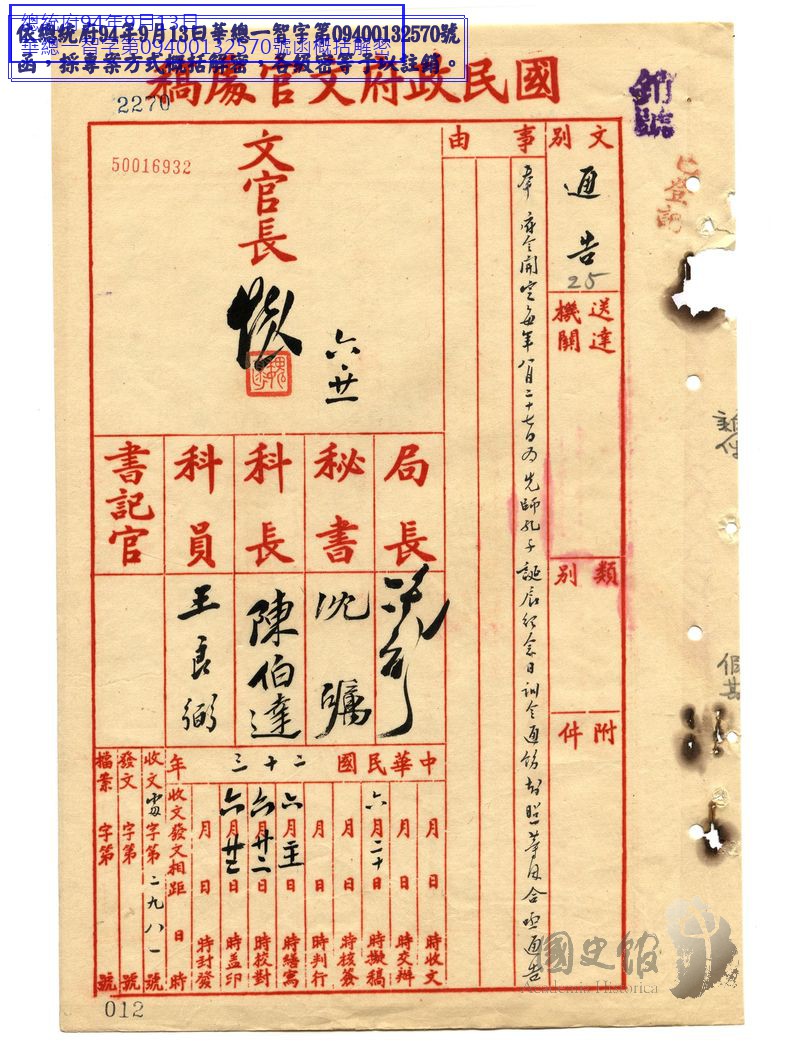 總統府94年9月13日
華總一智字第09400132570號函概括解密
依總統府94年9月13日華總一智字第09400132570號
函,採專案方式概括解密,各級密等予以註銷。
國民政府文官處稿
2270
銷號
已登記
50016932
文別
通告
25
送達機關
類別
附件
事由
奉 府令開定每年八月二十七日為先師孔子誕辰紀念日訓令通飭知照等因合亟通告
文官長
六.廿一
局長
秘書
沈
科長
陳伯達
科員
王良弼
書記官
中華民國二十三年
月 日 時收文
月 日 時交辦
六月二十日 時擬稿
月 日 時核簽
月 日 時判行
六月 日 時繕寫
六月廿二日 時校對
六月廿 日 時蓋印
月 日 時封發
收文發文相距 日 時
收文 字第二九八一號
發文 字第 號
檔案 字第 號
012
國史館
Academia Historica